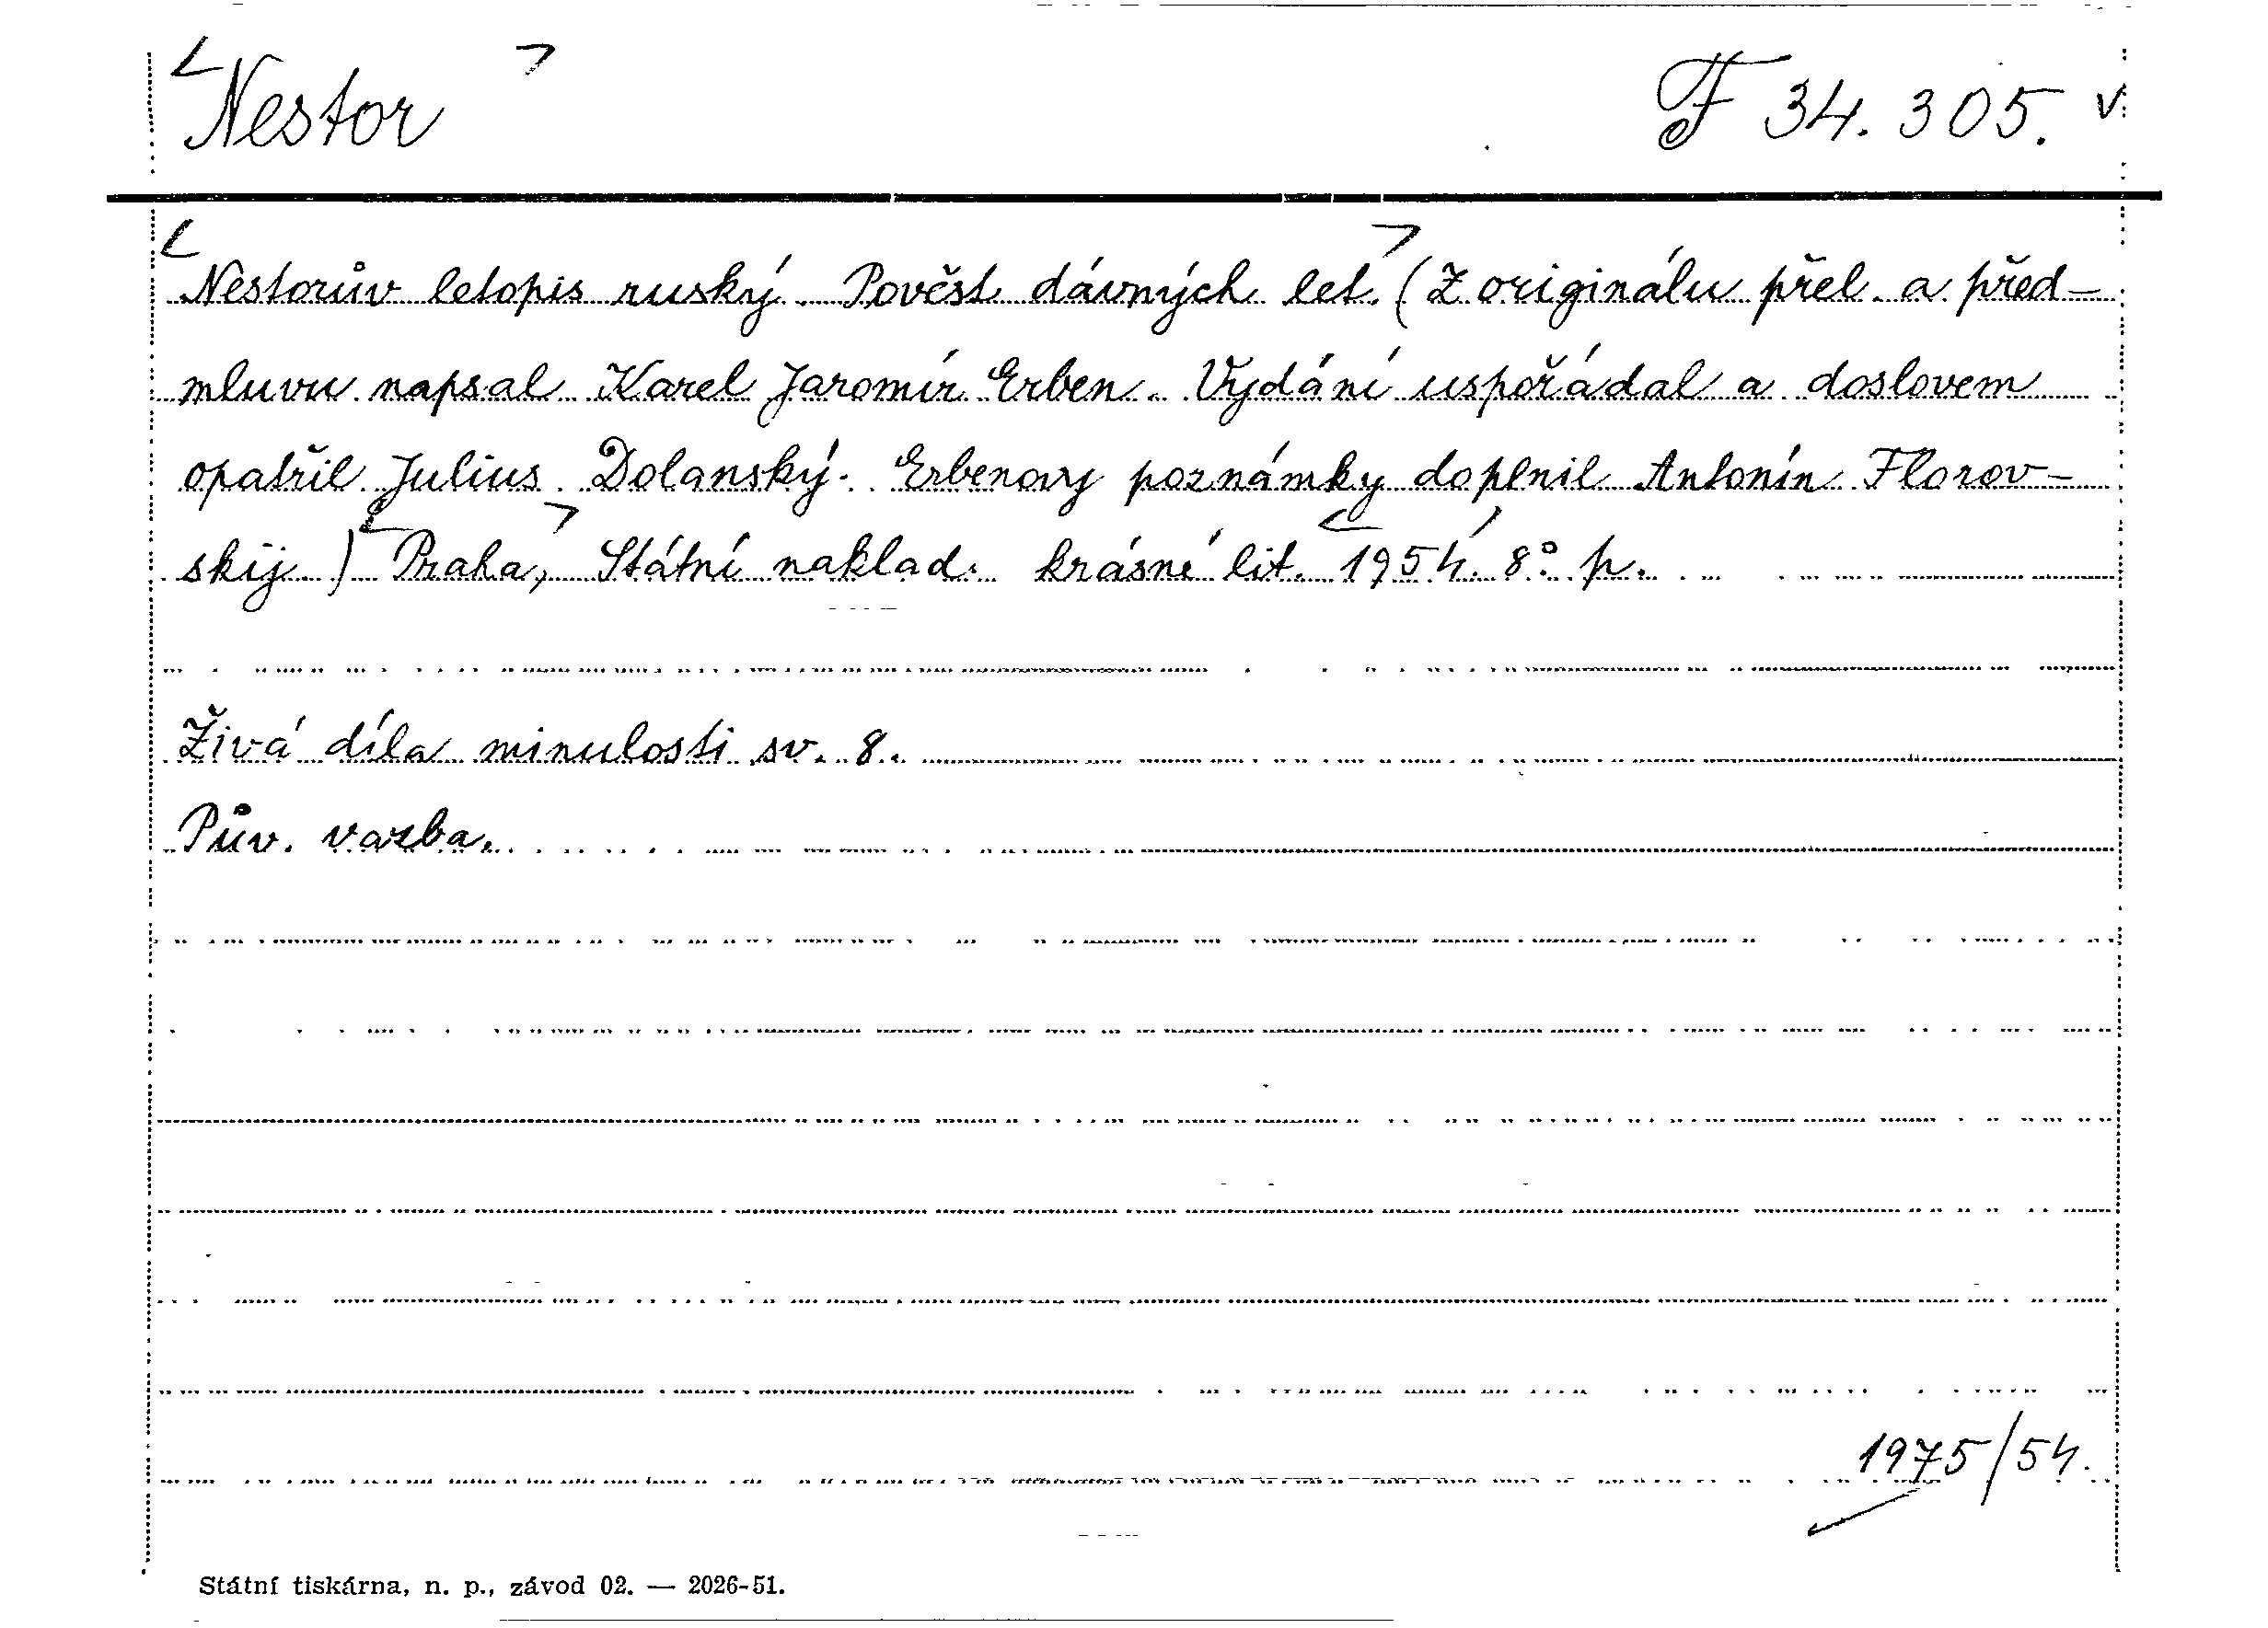 <Nestor> F 34.305. v
<Nestorův letopis ruský. Pověst dávných let.> (Z originálu přel. a před-
mluvu napsal Karel Jaromír Erben. Vydání uspořádal a doslovem
opatřil Julius Dolanský. Erbenovy poznámky doplnil Antonín Florov-
skij.) <Praha,> Státní naklad. krásné lit. <1954.> 8° p.
Živá díla minulosti sv. 8.
Pův. vazba.
1975/54.
Státní tiskárna, n. p., závod 02. — 2026-51.